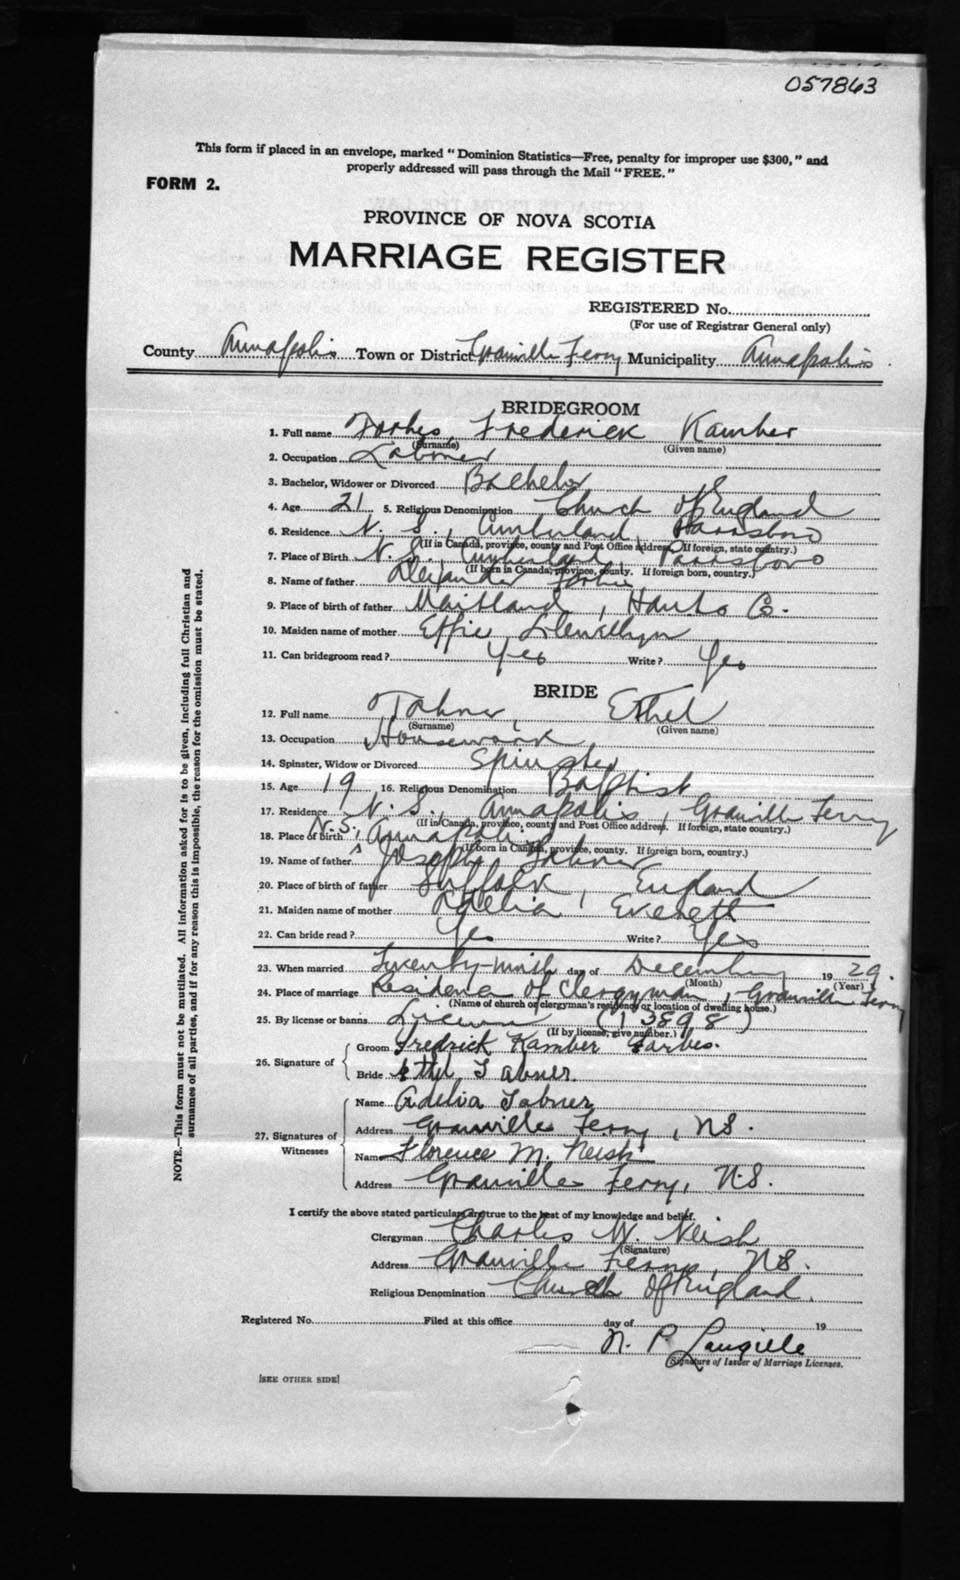 057863
This form if placed in an envelope, marked "Dominion Statistics—Free, penalty for improper use $300," and
properly addressed will pass through the Mail "FREE."
FORM 2.
PROVINCE OF NOVA SCOTIA
MARRIAGE REGISTER
REGISTERED No.
(For use of Registrar General only)
County Annapolis Town or District Granville Ferry Municipality Annapolis
BRIDEGROOM
1. Full name Forbes, Frederick Kamber
(Surname) (Given name)
2. Occupation Laborer
3. Bachelor, Widower or Divorced Bachelor
4. Age 21 5. Religious Denomination Church of England
6. Residence N. S., Cumberland Parrsboro
(If in Canada, province, county and Post Office address. If foreign, state country.)
7. Place of Birth N. S., Cumberland, Parrsboro
(If born in Canada, province, county. If foreign born, country.)
8. Name of father Alexander Forbes
9. Place of birth of father Maitland, Hants Co.
10. Maiden name of mother Effie Llewellyn
11. Can bridegroom read? Yes Write? Yes
BRIDE
12. Full name Tabner, Ethel
(Surname) (Given name)
13. Occupation Housework
14. Spinster, Widow or Divorced Spinster
15. Age 19 16. Religious Denomination Baptist
17. Residence N. S., Annapolis, Granville Ferry
(If in Canada, province, county and Post Office address. If foreign, state country.)
18. Place of Birth N.S., Annapolis
(If born in Canada, province, county. If foreign born, country.)
19. Name of father Joseph Tabner
20. Place of birth of father Suffolk, England
21. Maiden name of mother Adelia Everett
22. Can bride read? Yes Write? Yes
23. When married Twenty-ninth day of December 1929.
(Month) (Year)
24. Place of marriage Residence of Clergyman, Granville Ferry
(Name of church or clergyman's residence or location of dwelling house.)
25. By license or banns License (13898)
(If by license, give number.)
26. Signature of
Groom Fredrick Kamber Forbes.
Bride Ethel Tabner.
27. Signatures of Witnesses
Name Adelia Tabner
Address Granville Ferry, NS.
Name Florence M. Neish
Address Granville Ferry, N.S.
I certify the above stated particulars are true to the best of my knowledge and belief.
Clergyman Charles W. Neish
(Signature)
Address Granville Ferry, NS.
Religious Denomination Church of England.
Registered No. Filed at this office day of 19
N. P. Langille
(Signature of Issuer of Marriage Licenses.
[SEE OTHER SIDE]
NOTE.—This form must not be mutilated. All information asked for is to be given, including full Christian and
surnames of all parties, and if for any reason this is impossible, the reason for the omission must be stated.